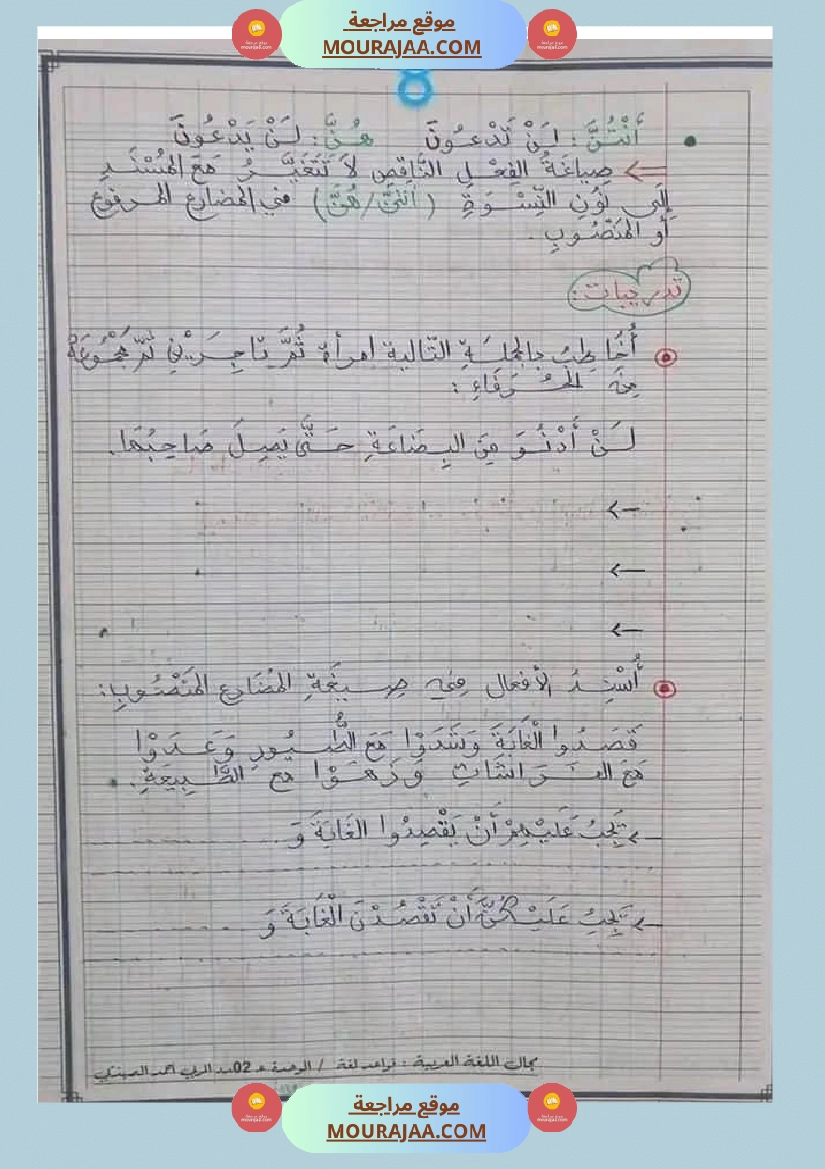 موقع مراجعة
MOURAJAA.COM
8
• أَنْتُنَّ : لَنْ تَدْعُونَ هُنَّ : لَنْ يَدْعُونَ
صِيَاغَةُ الفِعْلِ النَّاقِصِ لاَ تَتَغَيَّرُ مَعَ المُسْنَدِ
إِلَى نُونِ النِّسْوَةِ ( أَنْتُنَّ/هُنَّ) في المضارع المرفوع
أو المَنْصُوبِ .
تدريبات :
أُخَاطِبُ بِالجملَةِ التّالية امرأة ثُمَّ تاجِرَيْنِ ثُمّ مَجْمُوعَة
مِنَ الحُرَفَاءِ :
لَنْ أَدْنُوَ مِنَ البِضَاعَةِ حَتَّى يَصِلَ صَاحِبُهَا.
←
←
←
أُسْنِدُ الأفعال في صِيغَةِ المُضَارِعِ المَنْصُوبِ :
قَصَدُوا الْغَابَةَ وَشَدَوْا مَعَ الطُّيُورِ وَعَدَوْا
مَعَ الفَرَاشَاتِ وَزَهَوْا مع الطَّبِيعَةِ .
← يَجِبُ عَلَيْهِمْ أَنْ يَقْصِدُوا الغَابَةَ وَ
← يَجِبُ عَلَيْكُنَّ أَنْ تَقْصُدْنَ الْغَابَةَ وَ
مجال اللغة العربية : قواعد لغة / الوحدة عـ02ـدد
موقع مراجعة
MOURAJAA.COM